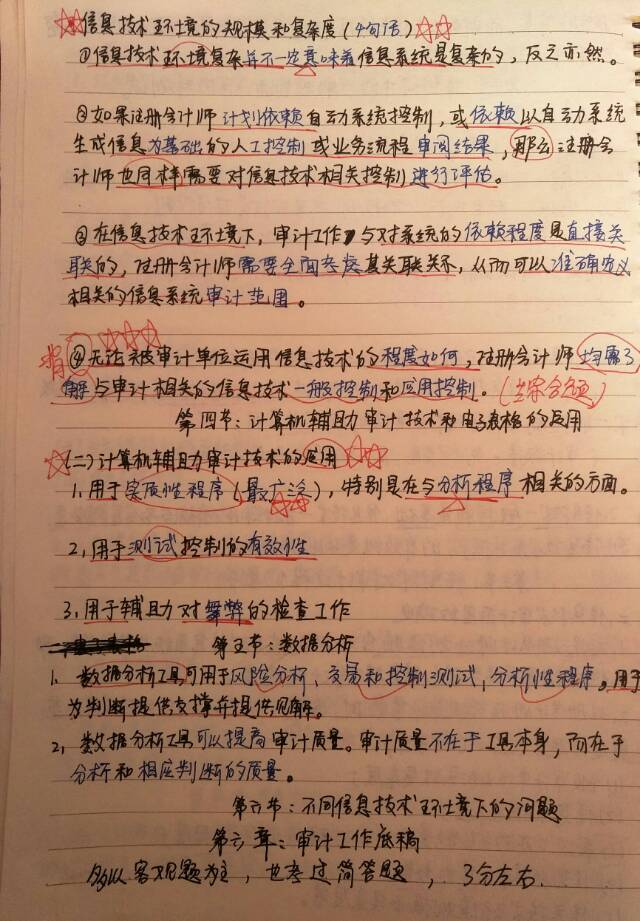 信息技术环境的规模和复杂度(4句话)
①信息技术环境复杂并不一定意味着信息系统是复杂的，反之亦然。
②如果注册会计师计划依赖自动系统控制，或依赖以自动系统
生成信息为基础的人工控制或业务流程审阅结果，那么注册会
计师也同样需要对信息技术相关控制进行评估。
③在信息技术环境下，审计工作与对系统的依赖程度是直接关
联的，注册会计师需要全面考虑其关联关系，从而可以准确定义
相关的信息系统审计范围。
背④无论被审计单位运用信息技术的程度如何，注册会计师均需了
解与审计相关的信息技术一般控制和应用控制。(综合题)
第四节：计算机辅助审计技术和电子表格的应用
(二)计算机辅助审计技术的应用
1.用于实质性程序(最广泛)，特别是在与分析程序相关的方面。
2,用于测试控制的有效性
3.用于辅助对舞弊的检查工作
第五节：数据分析
1、数据分析工具可用于风险分析、交易和控制测试，分析性程序。用于
为判断提供支撑并提供见解。
2,数据分析工具可以提高审计质量。审计质量不在于工具本身，而在于
分析和相应判断的质量。
第六节：不同信息技术环境下的问题
第六章：审计工作底稿
多以客观题为主，也考过简答题，3分左右.